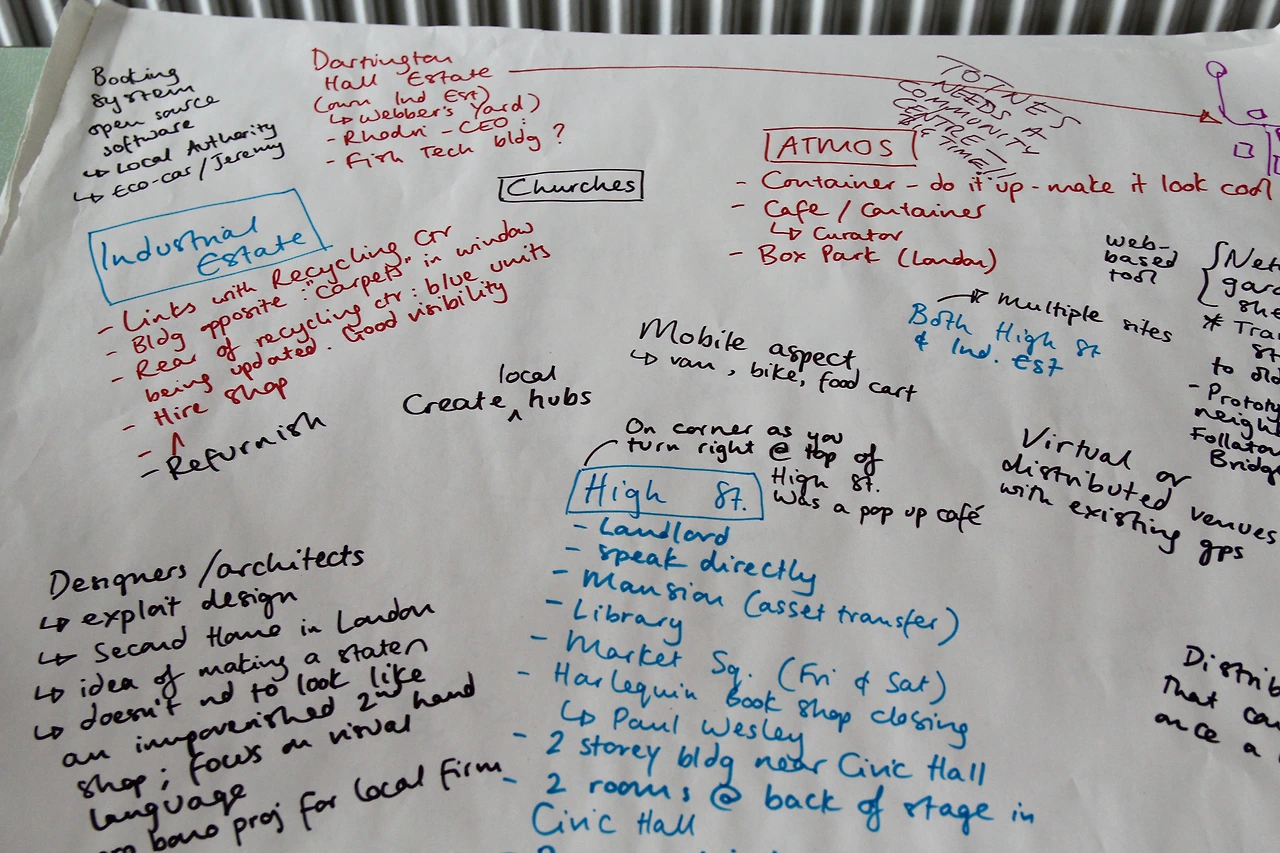 Booking
system
open source
software
↳ Local Authority
↳ Eco-car/Jeremy
Dartington
Hall Estate
(own Ind Est)
↳ Webber's Yard)
- Rhodri - CEO:
- Fish Tech bldg ?
TOTNES
NEEDS A
COMMUNITY
CENTRE
BIG
TIME!!
Churches
ATMOS
- Container - do it up - make it look cool
- Cafe / Container
↳ Curator
- Box Park (London)
Industrial
Estate
- Links with Recycling Ctr
- Bldg opposite: "Carpets" in window
- Rear of recycling ctr: blue units
being updated. Good visibility
- Hire shop
- ^
- Refurnish
local
Create ^ hubs
Mobile aspect
↳ van, bike, food cart
multiple sites
Both High St
& Ind. Est
web-
based
tool
* Tra
to old
- Prototy
neigh
Bridge
On corner as you
turn right @ top of
High St.
Was a pop up café
High St.
- Landlord
- speak directly
- Mansion (asset transfer)
- Library
- Market Sq. (Fri & Sat)
- Harlequin Book shop closing
↳ Paul Wesley
- 2 storey bldg near Civic Hall
- 2 rooms @ back of stage in
Civic Hall
Virtual or
distributed venues
with existing gps
Designers/architects
↳ exploit design
↳ Second Home in London
↳ idea of making a statem
↳ doesn't nd to look like
an impoverished 2nd hand
shop; focus on visual
language
bono proj for local firm
Distrib
that can
once a